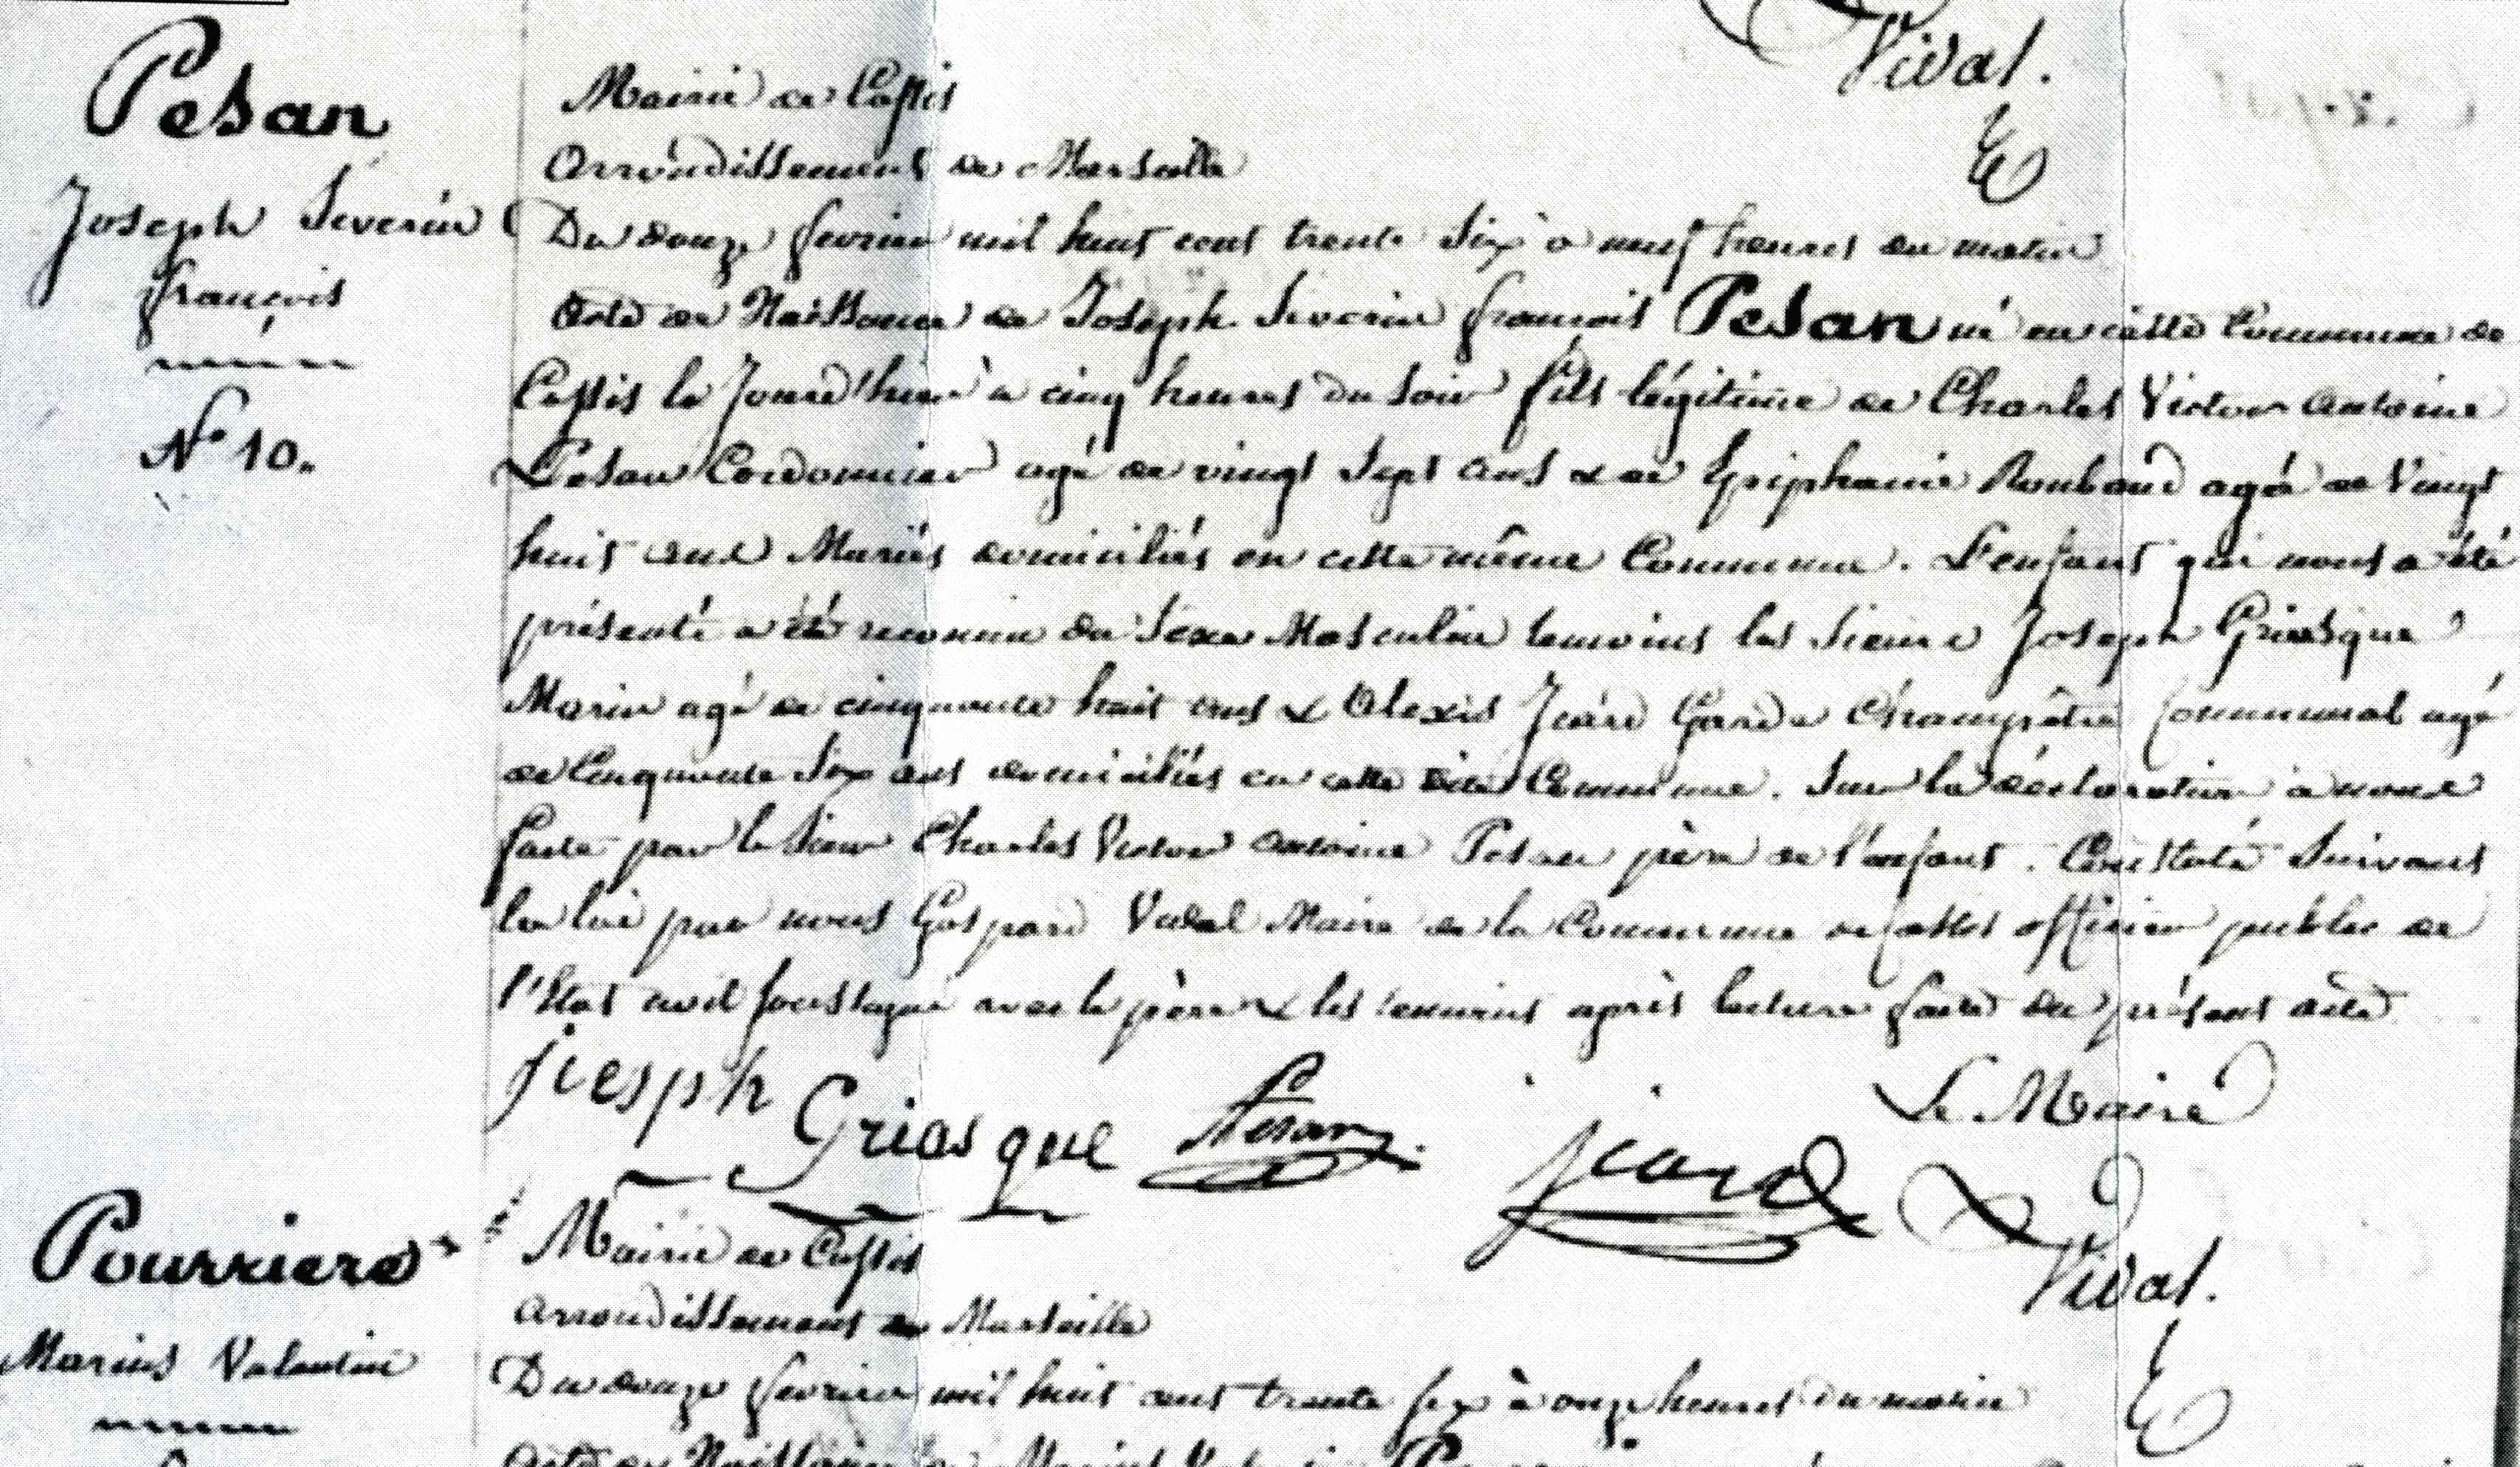 Vidal.
Pesan
Joseph Severin
françois
N° 10.
Mairie de Cassis
Arrondissement de Marseille
Du douze fevrier mil huit cent trente six à neuf heures du matin
Acte de Naissance de Joseph Severin françois Pesan né en cette Commune de
Cassis le Jourd'hier à cinq heures du soir fils légitime de Charles Victor Antoine
Pesan Cordonnier agé de vingt Sept ans & de Epiphanie Roubaud agée de Vingt
huit ans Mariés domiciliés en cette même Commune. L'enfant qui nous a été
présenté a été reconnu du Sexe Masculin temoins les Sieurs Joseph Griasque
Marin agé de cinquante huit ans & Alexis Jeard Garde Champêtre Communal agé
de Cinquante Six ans domiciliés en cette dite Commune. Sur la déclaration à nous
faite par le Sieur Charles Victor Antoine Pesan père de l'enfant. Constaté Suivant
la loi par nous Gaspard Vidal Maire de la Commune de Cassis officier public de
l'Etat civil soussigné avec le père & les temoins après lecture faite du présent acte
josph Griasque Pesan jeard Le Maire
Vidal.
Pourriere
Marius Valentin
Mairie de Cassis
Arrondissement de Marseille
Du douze fevrier mil huit cent trente six à onze heures du matin
Acte de Naissance de Marius Valentin